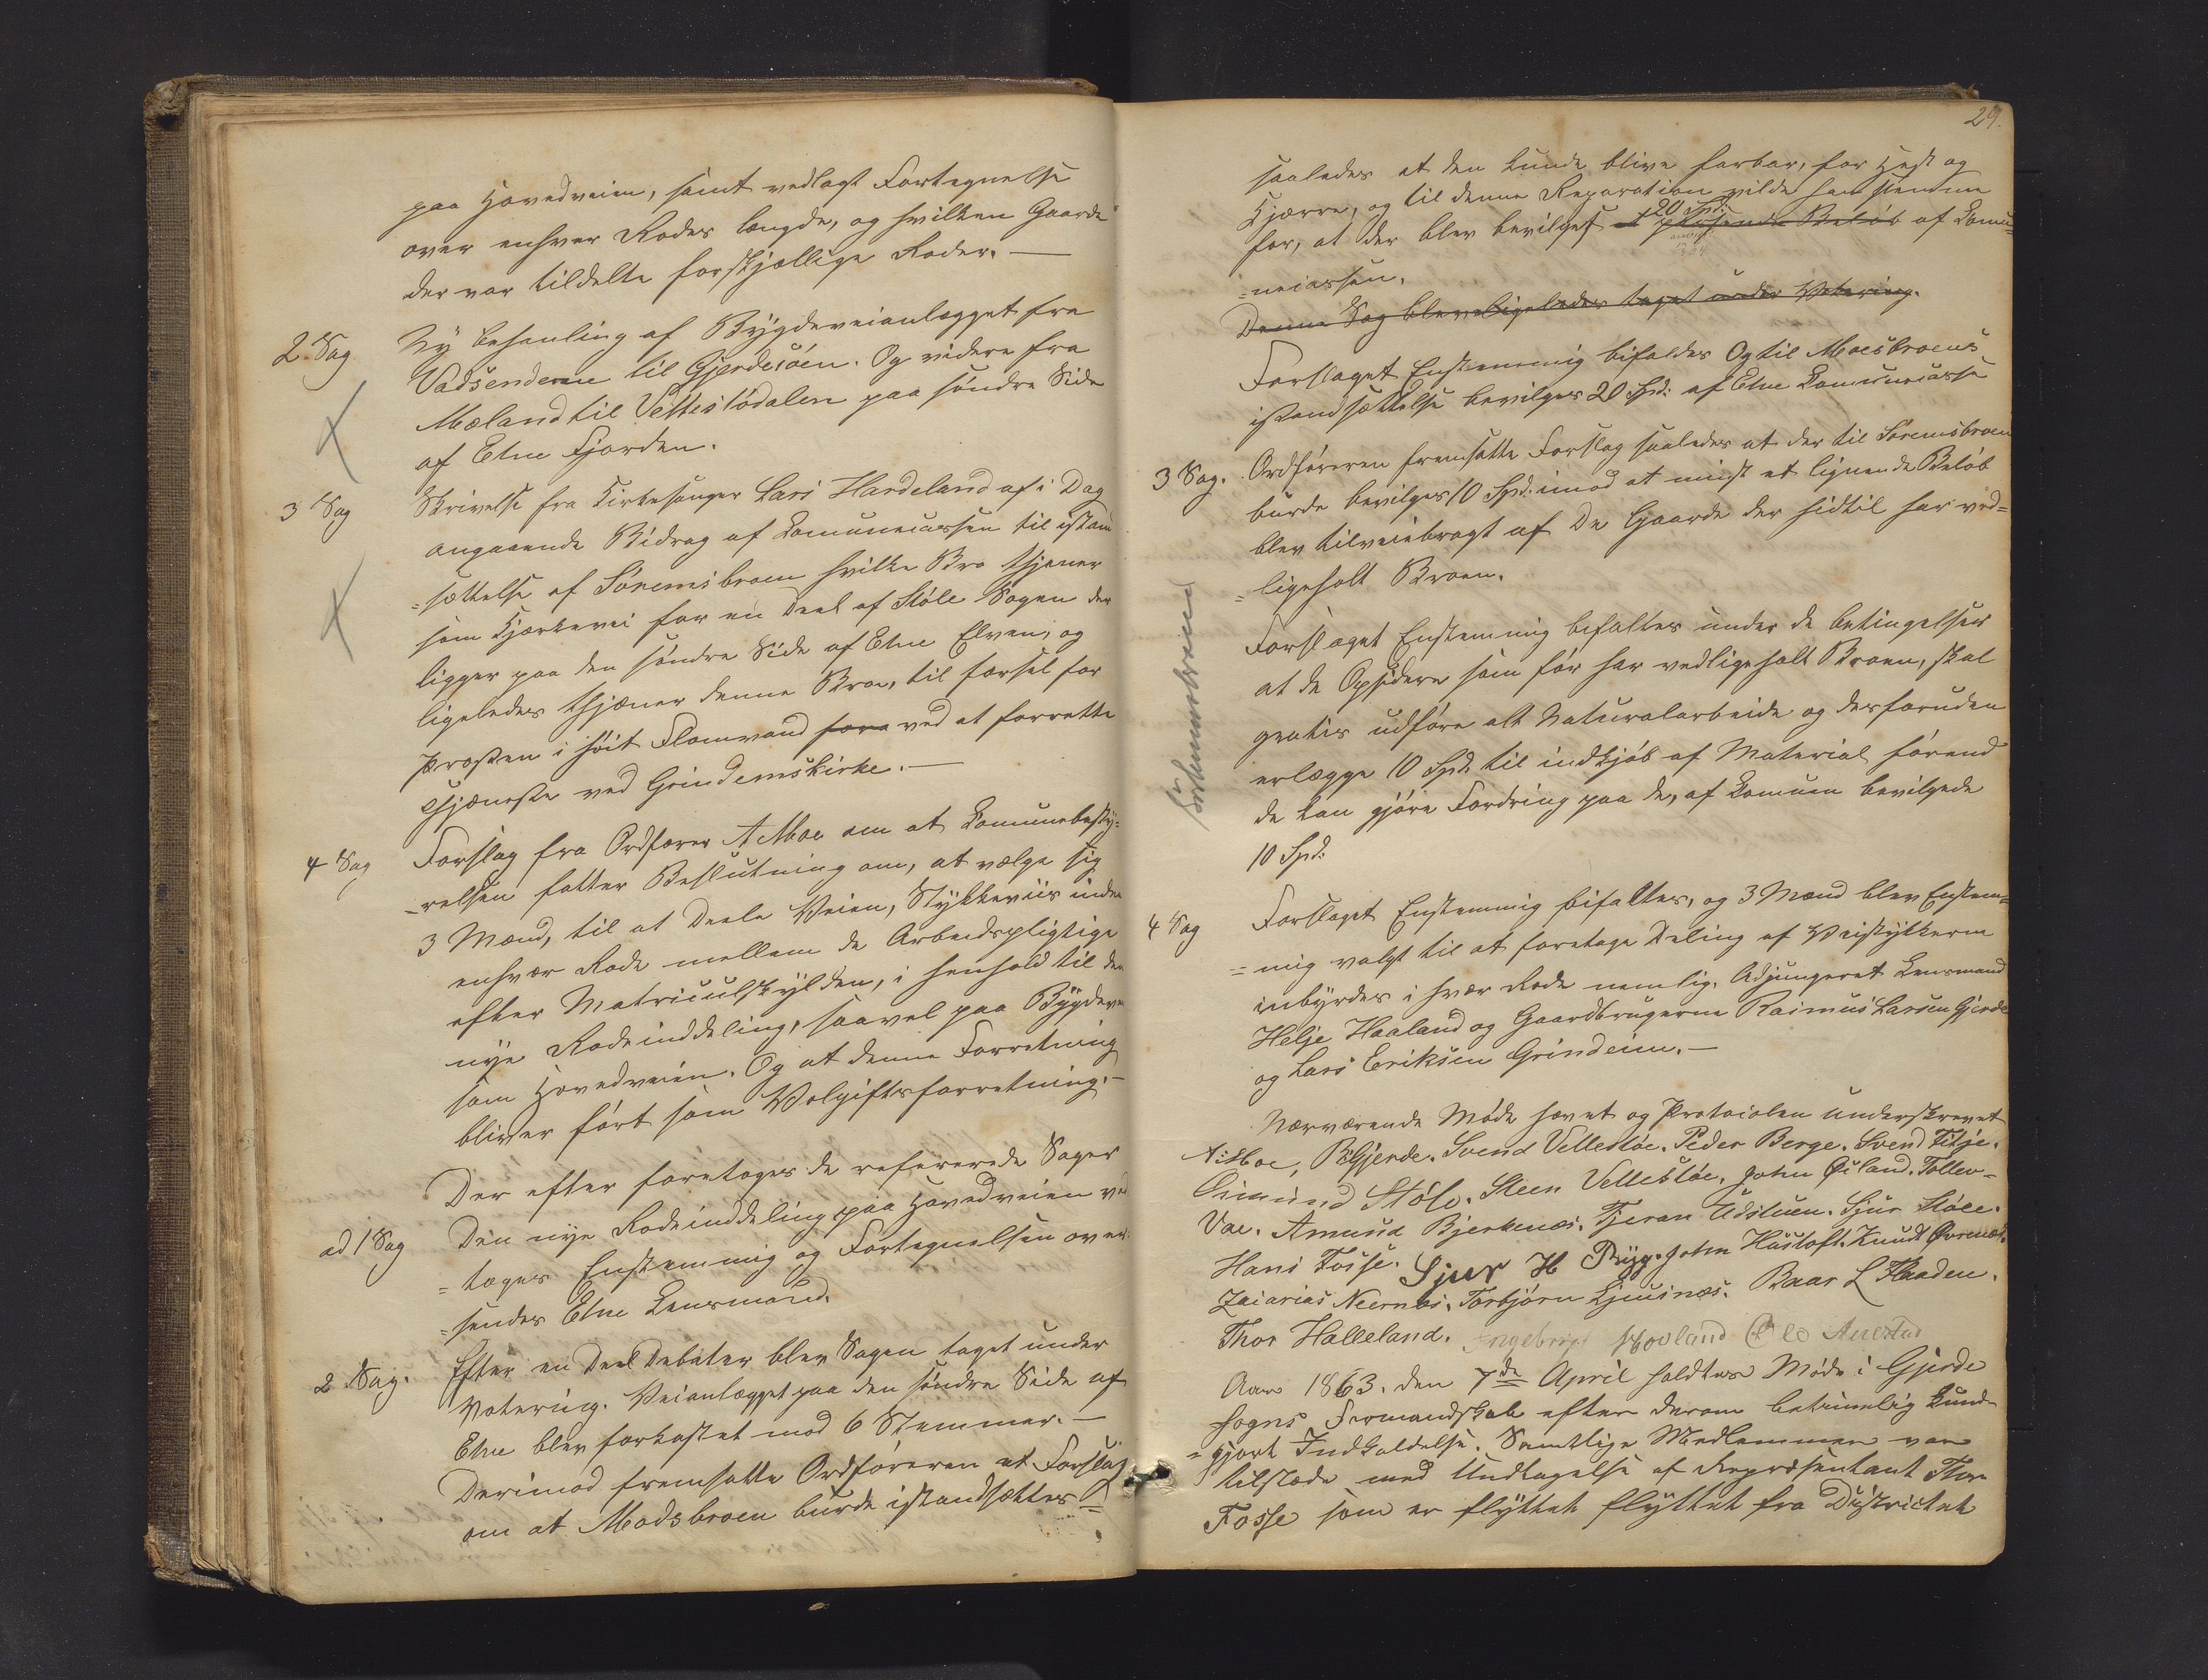 paa Hovedveien, samt vedlagt Fortegnelse
over enhver Rodes længde, og hvilken Gaarde
der var tildelte forskjællige Roder. —
2 Sag Ny behanling af Bygdeveianlægget fra
Vadsenderen til Gjerdesöen. Og videre fra
Mæland til Vettestödalen paa søndre Side
af Etne Fjorden.
3 Sag Skrivelse fra Kirkesanger Lars Hardeland af i Dag
angaaende Bidrag af Komunecassen til istand
=sættelse af Söremsbroen hvilke Bro thjener
som Kjørkevei for en Deel af Støle Sogen der
ligger paa den søndre Side af Etne Elven, og
ligeledes thjæner denne Broe, til forsel for
Prosten i høit Flomvand fore ved at forrette
thjæneste ved Grindemskirke. —
4 Sag Forslag fra Ordfører A Moe om at Komunebesty=
=relsen fatter Beslutning om, at vælge sig
3 Mænd, til at Deele Veien, Stykkeviis inden
enhver Rode mellem de Arbeidspligtige
efter Matriculskylden, i henhold til den
nye Rodeinddeling, saavel paa Bygdevei
som Hovedveien. Og at denne Forretning
bliver ført som Volgiftsforretning. —
Der efter foretages de refererede Sager
ad 1 Sag Den nye Rodeinddeling paa Hovedveien ved
=tages Enstemmig og Fortegnelsen over
=sendes Etne Lensmand.
2 Sag. Efter en Deel Debater blev Sagen taget under
Votering. Veianlægget paa den søndre Side af
Etne blev forkastet mod 6 Stemmer. —
Derimod fremsatte Ordføreren et Forslag
om at Modsbroen burde istandsættes =
29.
saaledes at den kunde blive farbar, for Hest og
Kjærre, og til denne Reparation vilde han stemme
20 Spd.
for, at der blev bevilget et passende Beløb af Komu=
=necassen.
Denne Sag blev ligeledes taget under Votering.
Forslaget Enstemmig bifaldes Og til Moesbroens
istandsættelse bevilges 20 Spd. af Etne Komunecasse
3 Sag. Ordføreren fremsatte Forslag saaledes at der til Söremsbroen
burde bevilges 10 Spd. imod at mindst et lignende Beløb
blev tilveiebragt af De Gaarde der hidtil har ved=
=ligeholt Broen.
Forslaget Enstemmig bifaltes under de betingelser
at de Opsidere som før har vedligeholt Broen, skal
gratis udføre alt Naturalarbeide og desforuden
erlægge 10 Spd. til indkjøb af Material førend
de kan gjøre Fordring paa de, af Komunen bevilgede
10 Spd.
4 Sag Forslaget Enstemmig bifaltes, og 3 Mænd blev Enstem=
=mig valgt til at foretage Deling af Veistykkerne
inbyrdes i hver Rode nemlig. Adjungeret Lensmand
Helje Haaland og Gaardbrugerne Rasmus Larsen Gjerde
og Lars Eriksen Grindeim. —
Nærværende Møde hævet og Protocolen underskrevet
A Moe, B Gjerde. Svend Vellestöe. Peder Berge. Svend Fitje.
Omund Stöle. Steen Vellestöe, John Öiland. Tollev=
Vae. Amund Bjerkenæs. Tjeran Udstuen. Sjur Stöle.
Hans Fosse. Sjur H Rygg. John Hustoft. Knudt Övrenæs.
Zacarias Neernæs. Torbjörn Ljuusnæs. Baar L Flaaden.
Thor Halleland. Ingebrigt Hovland Ole Aurstad
Aar 1863. den 7de April holdtes Møde i Gjerde
Sogns Formandskab efter derom betimelig kund=
=gjort Indkaldelse. Samtlige Medlemmer var
tilstede med Undtagelse af Repræsentant Thor
Fosse som er flyttet flyttet fra Districtet